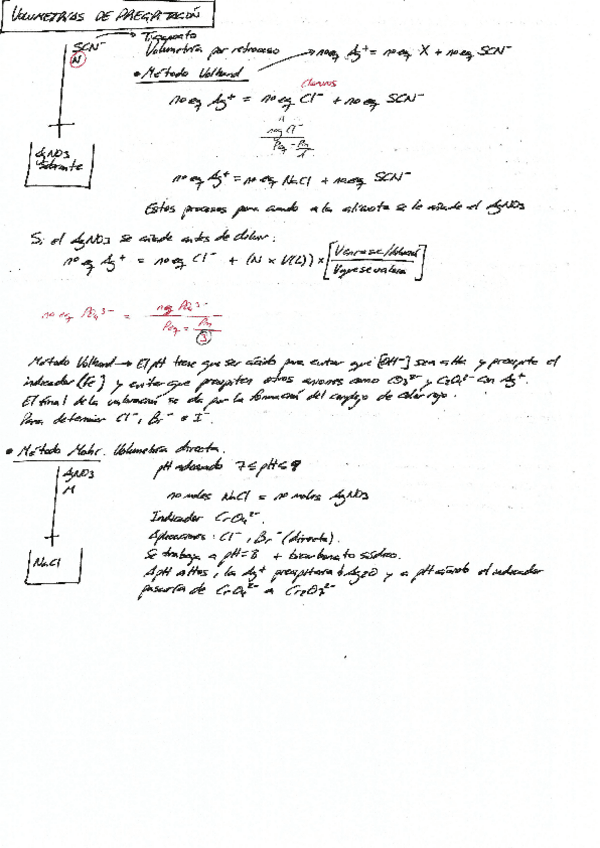 VOLUMETRIAS DE PRECIPITACIÓN
SCN⁻ → Tiocianato
N
Volumetría por retroceso → nº eq Ag⁺ = nº eq X + nº eq SCN⁻
• Método Volhard
Cloruros
nº eq Ag⁺ = nº eq Cl⁻ + nº eq SCN⁻
meq Cl⁻
Peq = Pm/1
AgNO3
nº eq Ag⁺ = nº eq NaCl + nº eq SCN⁻
Estos procesos para cuando a la alícuota se le añade el AgNO3
Si el AgNO3 se añade antes de diluir:
nº eq Ag⁺ = nº eq Cl⁻ + (N x V(L)) x [V enrase / V que se valora]
nº eq PO4³⁻ = meq PO4³⁻
Peq = Pm/3
Método Volhard → El pH tiene que ser ácido para evitar que [OH⁻] sea alta y precipite el
indicador (Fe ) y evitar que precipiten otros aniones como CO3²⁻ y C2O4²⁻ con Ag⁺.
El final de la valoración se da por la formación del complejo de color rojo.
Para determinar Cl⁻, Br⁻ e I⁻.
• Método Mohr. Volumetría directa.
AgNO3
M
pH adecuado 7 ≤ pH ≤ 9
nº moles NaCl = nº moles AgNO3
Indicador CrO4²⁻.
Aplicaciones: Cl⁻, Br⁻ (directa).
Se trabaja a pH=8 + bicarbonato sódico.
NaCl
A pH altos, la Ag⁺ precipitaría Ag2O y a pH ácido el indicador
pasaría de CrO4²⁻ a Cr2O7²⁻